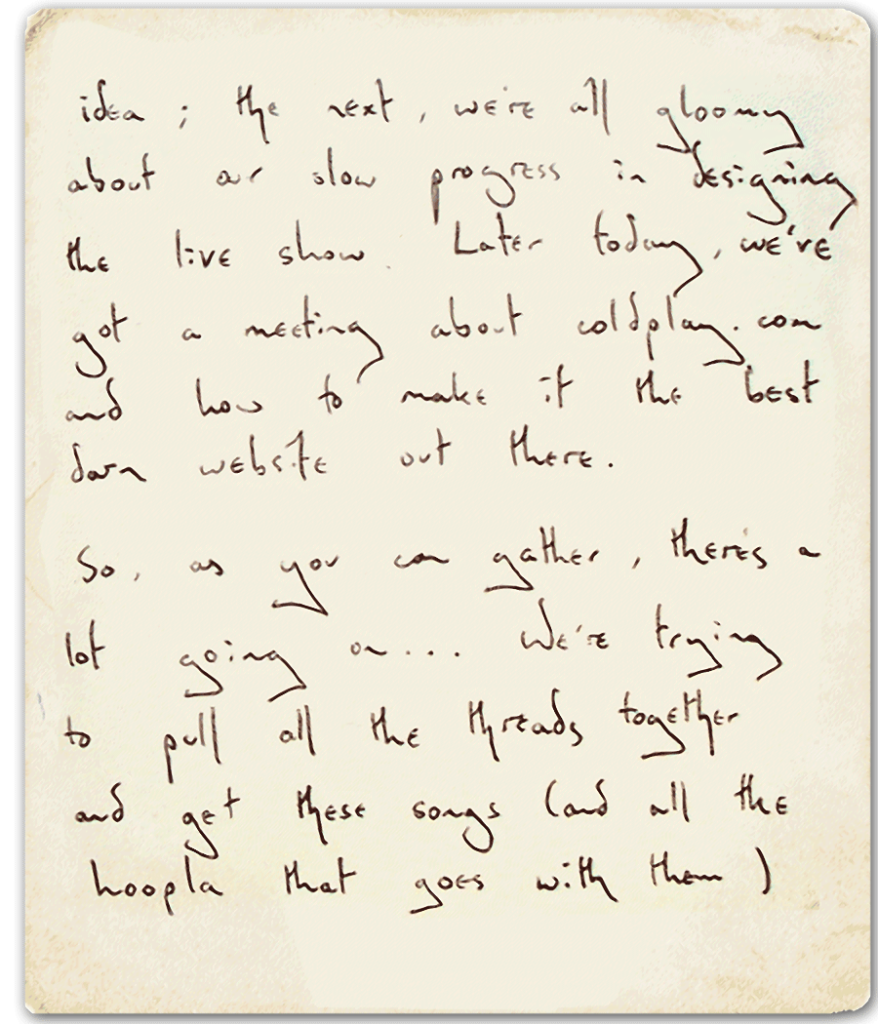 idea ; the next, we're all gloomy
about our slow progress in designing
the live show. Later today, we've
got a meeting about coldplay.com
and how to make it the best
darn website out there.
So, as you can gather, there's a
lot going on... We're trying
to pull all the threads together
and get these songs (and all the
hoopla that goes with them)